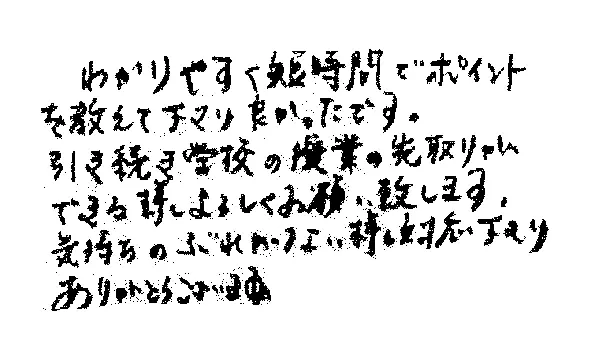 わかりやすく短時間でポイント
を教えて下さり良かったです。
引き続き学校の授業の先取りが
できる様よろしくお願い致します。
気持ちのぶれがない様に対応下さり
ありがとうございます